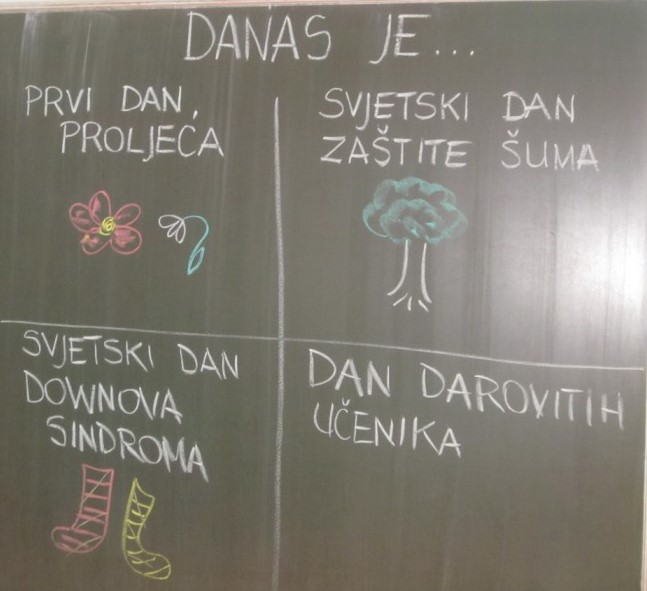 DANAS JE...
PRVI DAN
PROLJEĆA
SVJETSKI DAN
ZAŠTITE ŠUMA
SVJETSKI DAN
DOWNOVA
SINDROMA
DAN DAROVITIH
UČENIKA